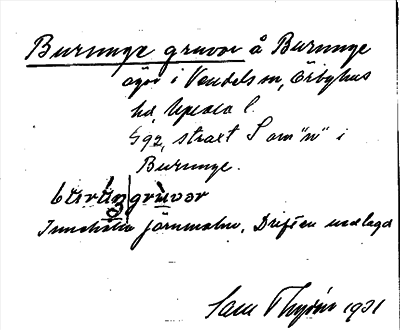 Burunge gruvor å Burunge
ägor i Vendels sn, Örbyhus
hd, Uppsala l.
§92, straxt S om "n" i
Burunge.
buruŋgruvər
Innehålla järnmalm. Driften nedlagd
1931